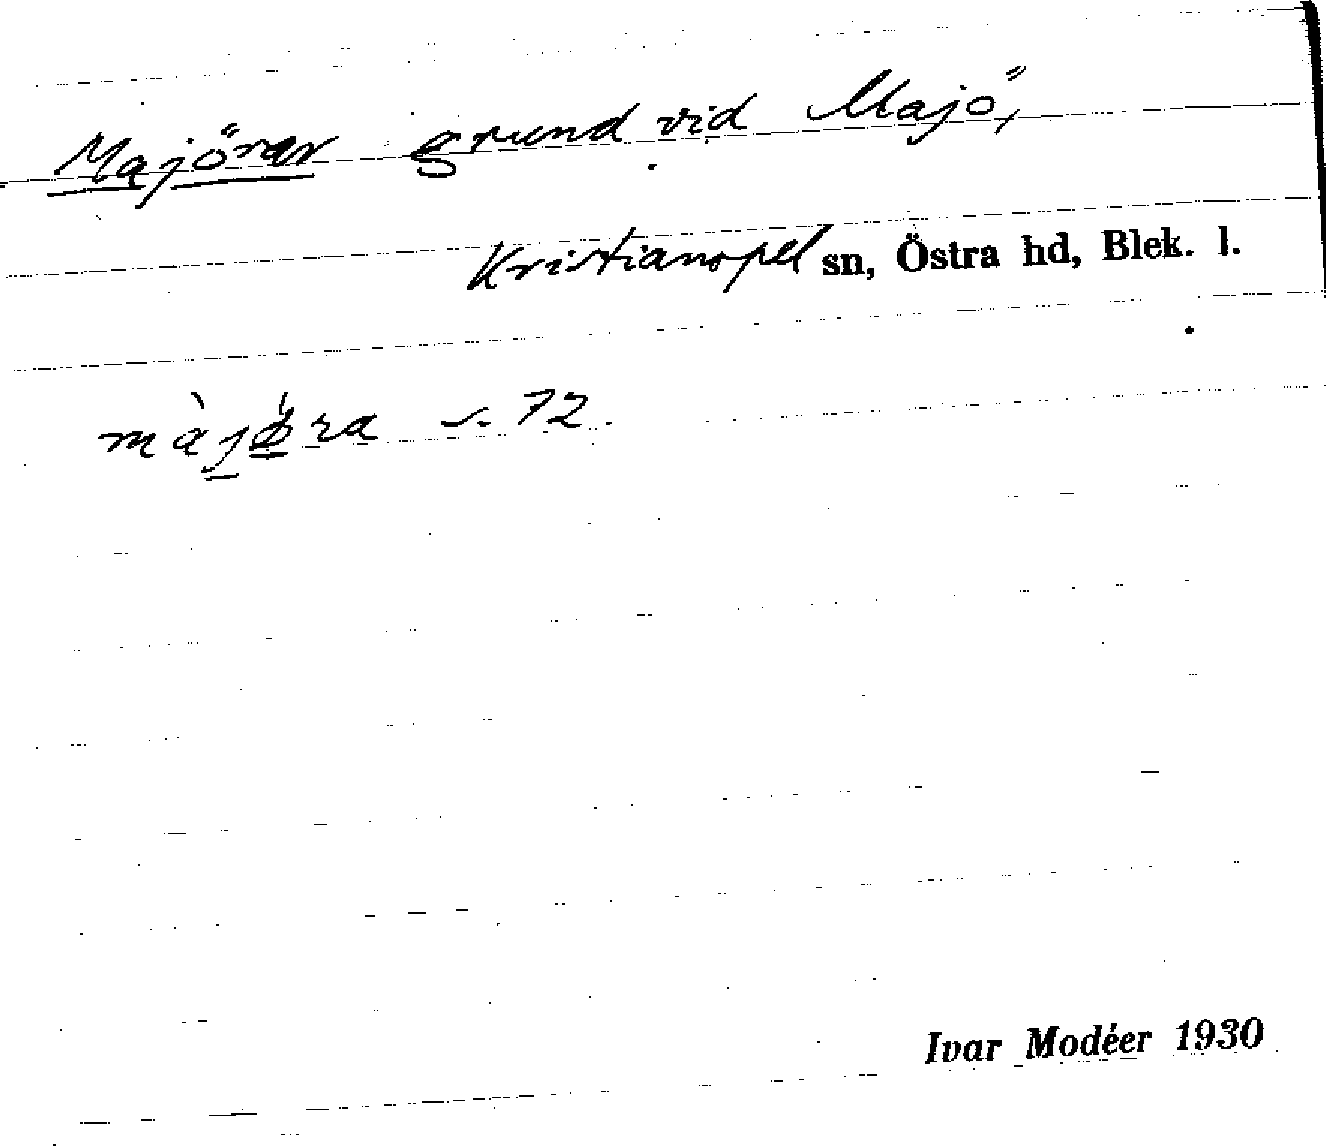 Majörar grund vid Majö,
Kristianopel sn, Östra hd, Blek. l.
màjö̀ra s. 72.
Ivar Modéer 1930